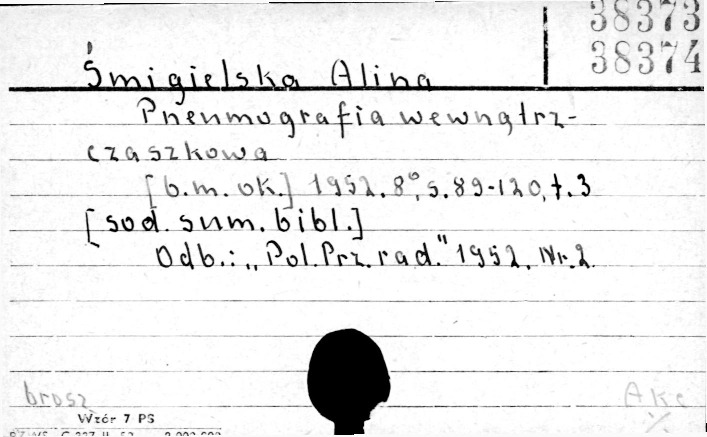 38373
38374
Śmigielska Alina
Pneumografia wewnątrz-
czaszkowa
[b.m. ok.] 1952. 8°, s. 89-120, t. 3
[sod. sum. bibl.]
Odb.: „Pol. Prz. rad." 1952. Nr. 2.
brosz
Akc
Wzór 7 PS